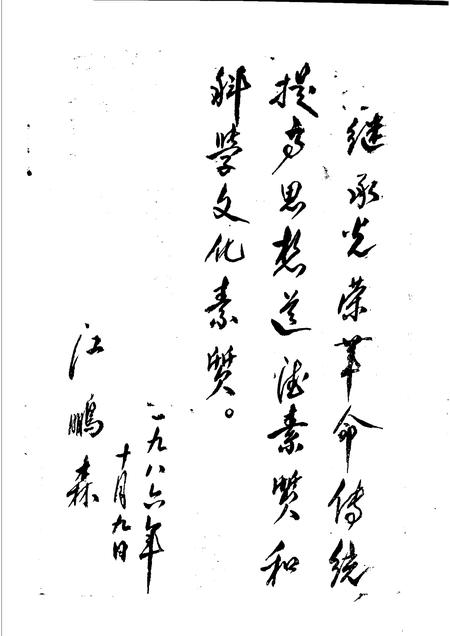 继承光荣革命传统，
提高思想道德素质和
科学文化素质。
汪鹏森
一九八六年
十月九日